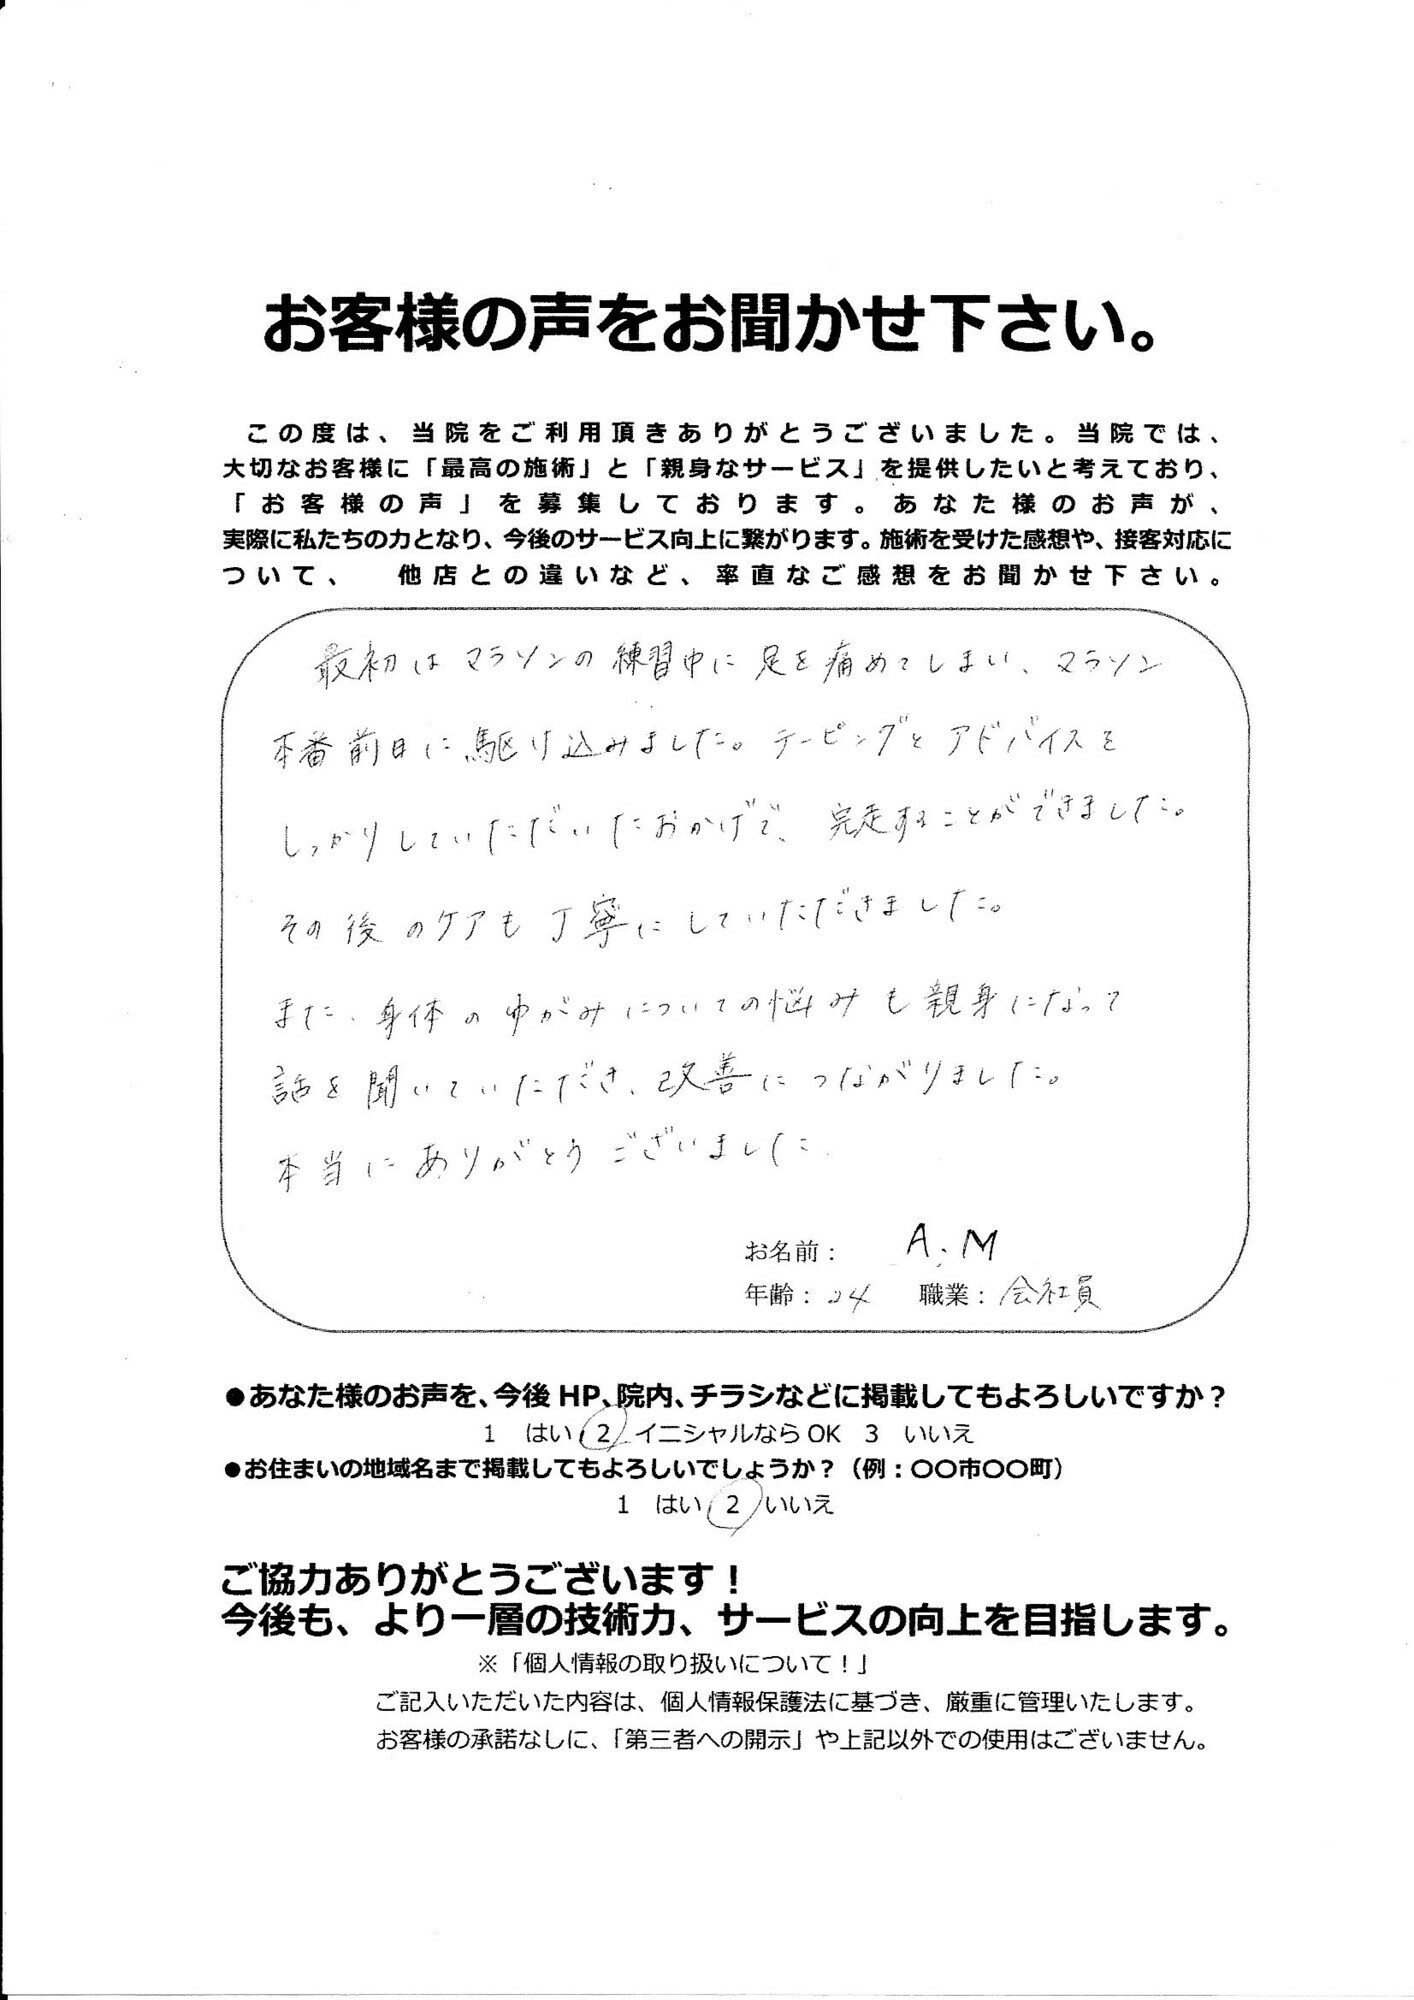 お客様の声をお聞かせ下さい。
この度は、当院をご利用頂きありがとうございました。当院では、
大切なお客様に「最高の施術」と「親身なサービス」を提供したいと考えており、
「お客様の声」を募集しております。あなた様のお声が、
実際に私たちの力となり、今後のサービス向上に繋がります。施術を受けた感想や、接客対応に
ついて、　他店との違いなど、率直なご感想をお聞かせ下さい。
最初はマラソンの練習中に足を痛めてしまい、マラソン
本番前日に駆け込みました。テーピングとアドバイスを
しっかりしていただいたおかげで、完走することができました。
その後のケアも丁寧にしていただきました。
また、身体のゆがみについての悩みも親身になって
話を聞いていただき、改善につながりました。
本当にありがとうございました。
お名前： A.M
年齢：24　職業：会社員
●あなた様のお声を、今後 HP、院内、チラシなどに掲載してもよろしいですか？
1　はい　2　イニシャルなら OK　3　いいえ
●お住まいの地域名まで掲載してもよろしいでしょうか？（例：〇〇市〇〇町）
1　はい　2　いいえ
ご協力ありがとうございます！
今後も、より一層の技術力、サービスの向上を目指します。
※「個人情報の取り扱いについて！」
ご記入いただいた内容は、個人情報保護法に基づき、厳重に管理いたします。
お客様の承諾なしに、「第三者への開示」や上記以外での使用はございません。